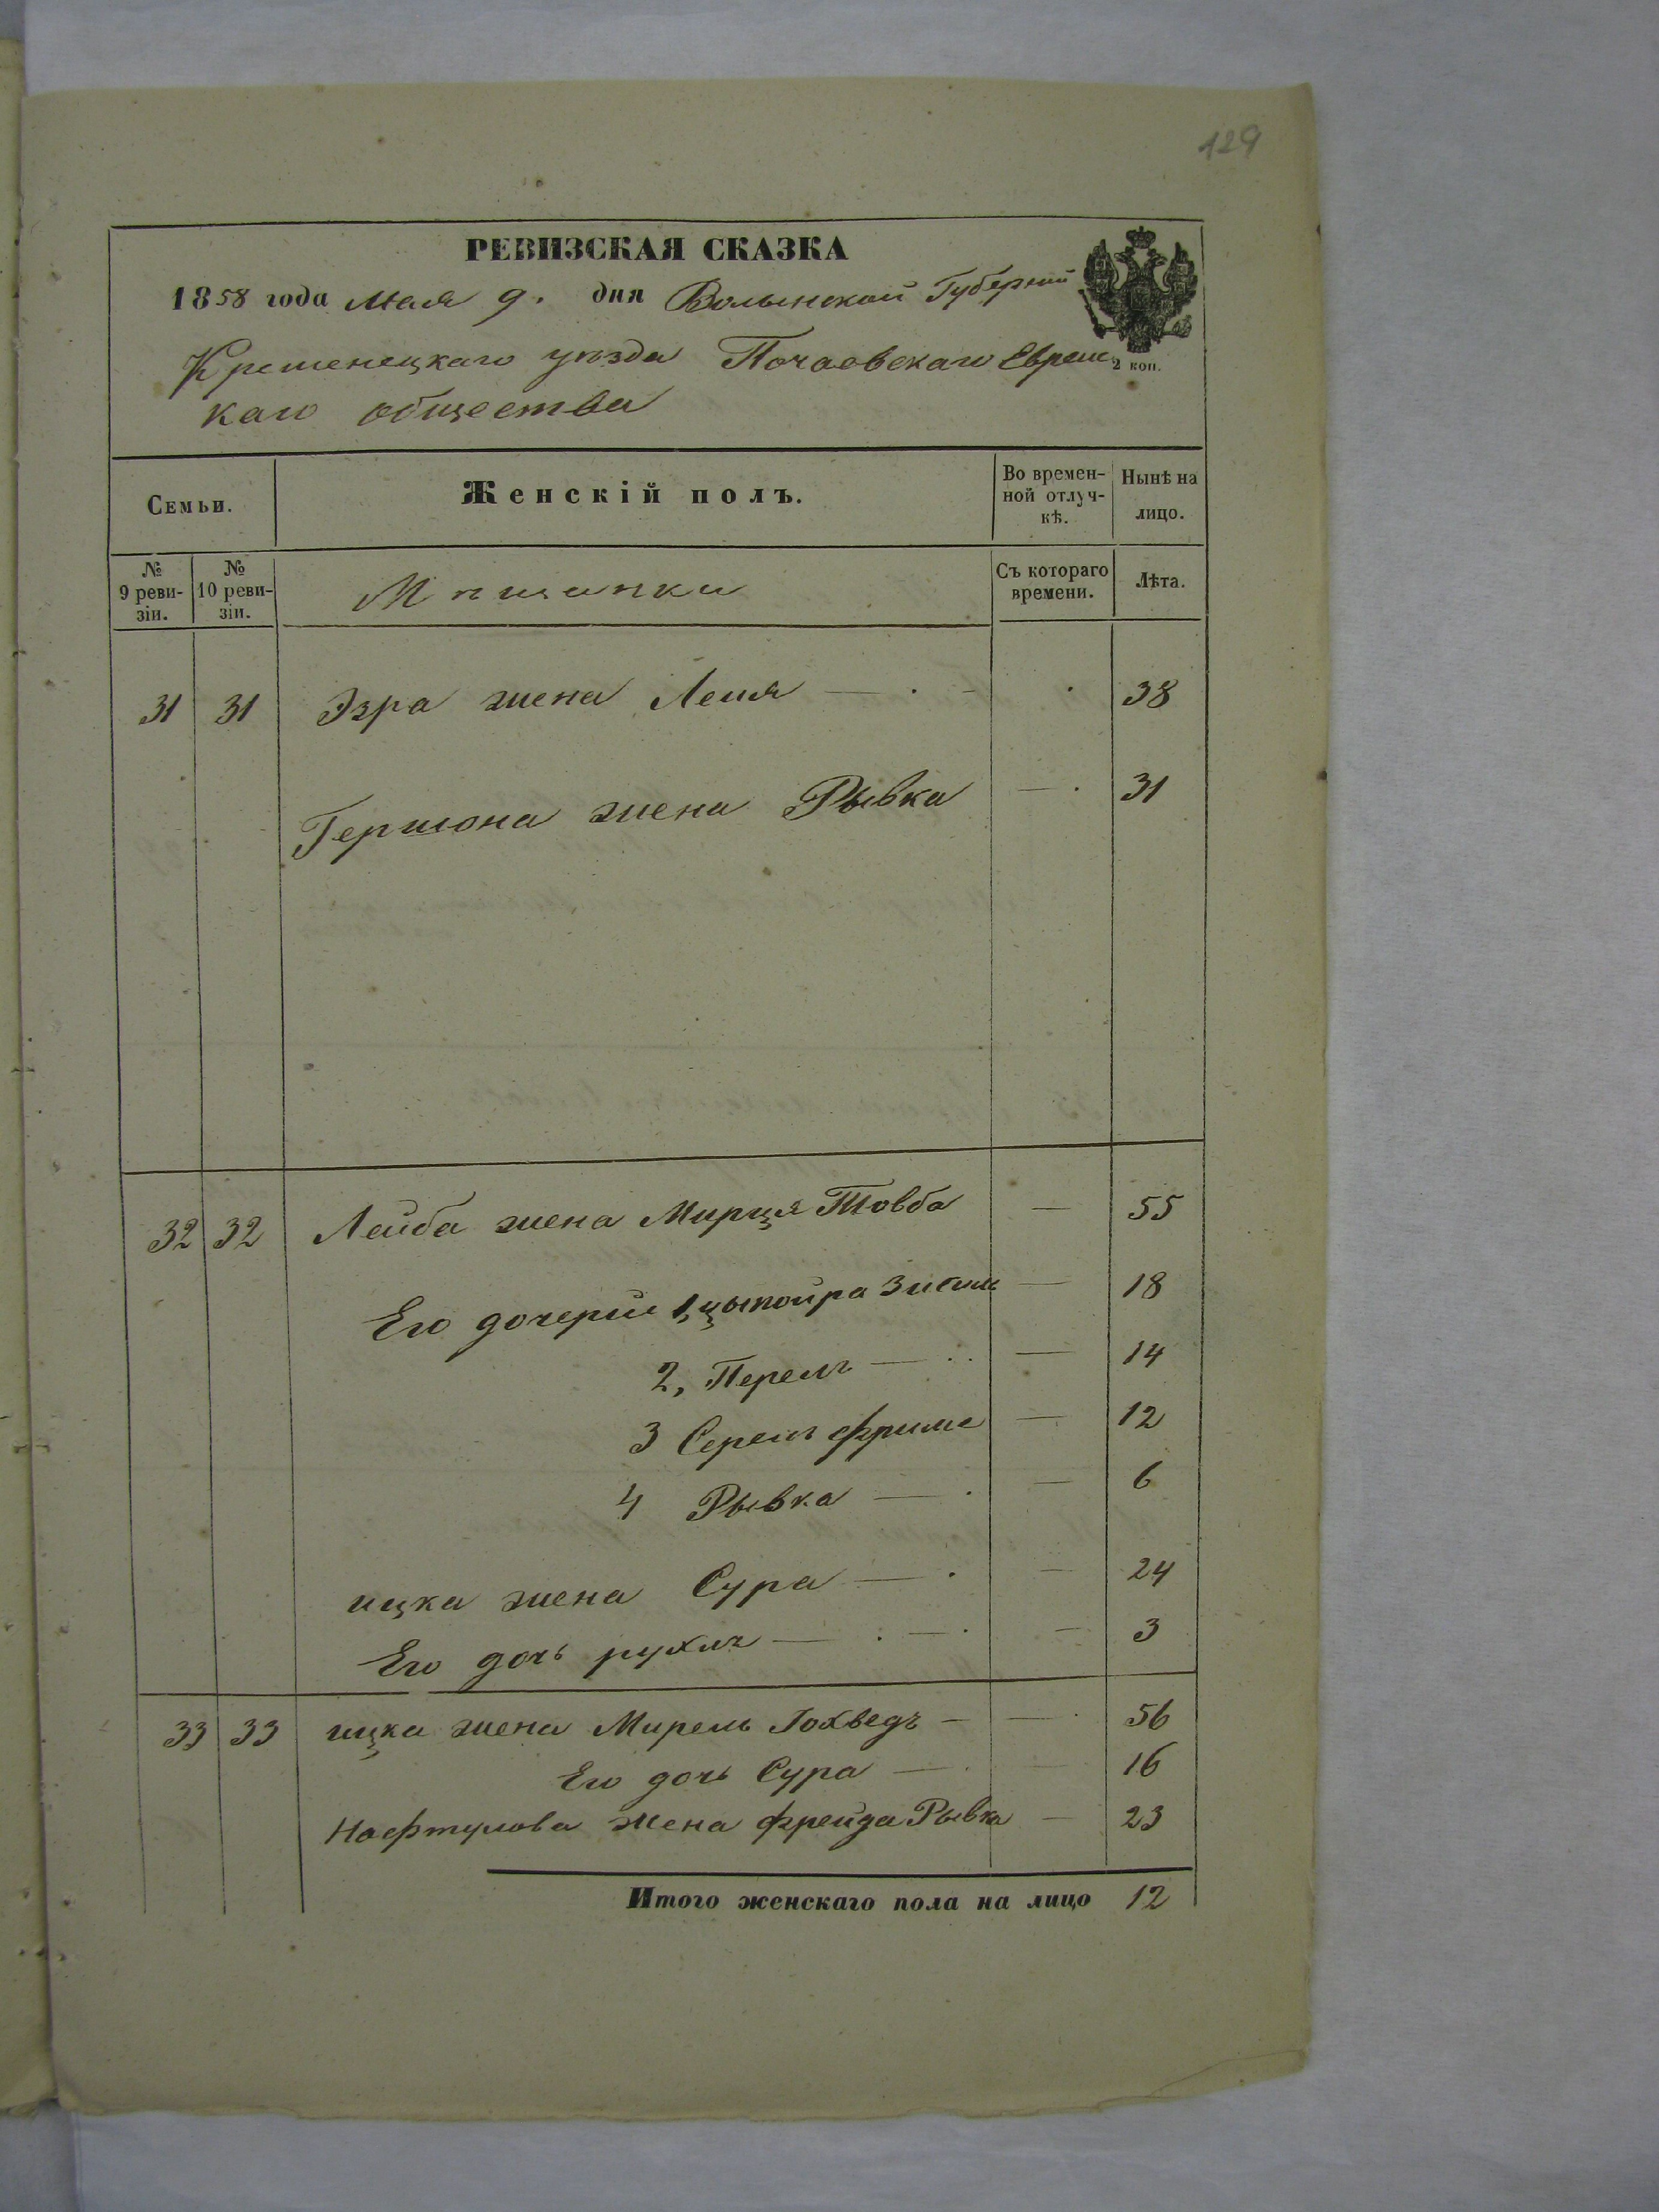 129
РЕВИЗСКАЯ СКАЗКА
1858 года Мая 9. дня Волынской Губерній
Кременецкаго уѣзда Почаевскаго Евреис
2 коп.
каго общества
Семьи.
Женскій полъ.
Во времен-
ной отлуч-
кѣ.
Нынѣ на
лицо.
№
9 реви-
зіи.
№
10 реви-
зіи.
Мѣщанки
Съ котораго
времени.
Лѣта.
31 31 Эзра жена Лея — . - . 38
Гершона жена Рывка — . 31
32 32 Лейба жена Мирця Товба — 55
Его дочерии 1, цыпойра — 18
2, Перелъ — . . — 14
3 Серелъ Фрима — 12
4 Рывка — . — 6
ицка жена Сура — . — 24
Его дочь рухлъ — . — . — 3
33 33 ицка жена Мирель Гохведъ — — . 56
Его дочь Сура — . — 16
Нафтулова жена Фрейда Рывка — 23
Итого женскаго пола на лицо 12